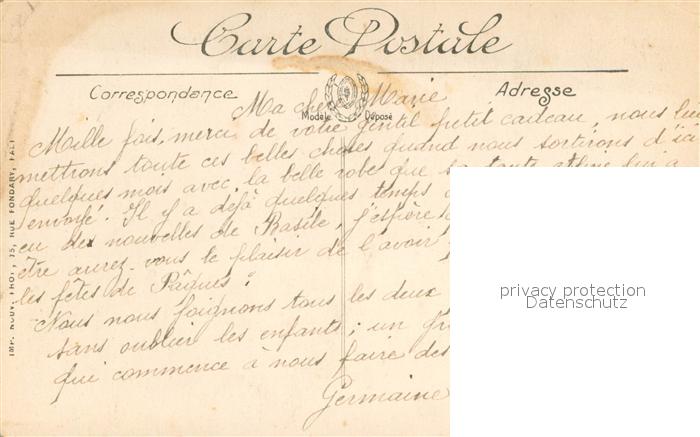 Carte Postale
Correspondance
Adresse
Modèle Déposé
Ma chère Marie
Mille fois merci de votre gentil petit cadeau, nous lui
mettrons toute ces belles choses quand nous sortirons d'ici
quelques mois avec la belle robe que sa tante lui a
envoyé. Il y a déjà quelques temps
eu des nouvelles de Basile, j'espère
être aurez-vous le plaisir de l'avoir
les fêtes de Pâques.
Nous nous joignons tous les deux
sans oublier les enfants; un
qui commence à nous faire des
Germaine
privacy protection
Datenschutz
RUE FONDARY,